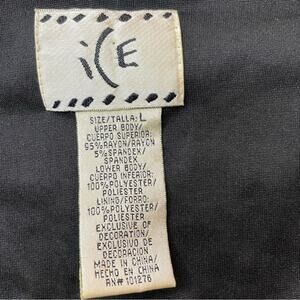 iCE
SIZE/TALLA: L
UPPER BODY/
CUERPO SUPERIOR:
95%RAYON/RAYON
5%SPANDEX/
SPANDEX
LOWER BODY/
CUERPO INFERIOR:
100%POLYESTER/
POLIÉSTER
LINING/FORRO:
100%POLYESTER/
POLIÉSTER
EXCLUSIVE OF
DECORATION/
EXCLUSIVO DE
DECORACIÓN
MADE IN CHINA/
HECHO EN CHINA
RN# 101276